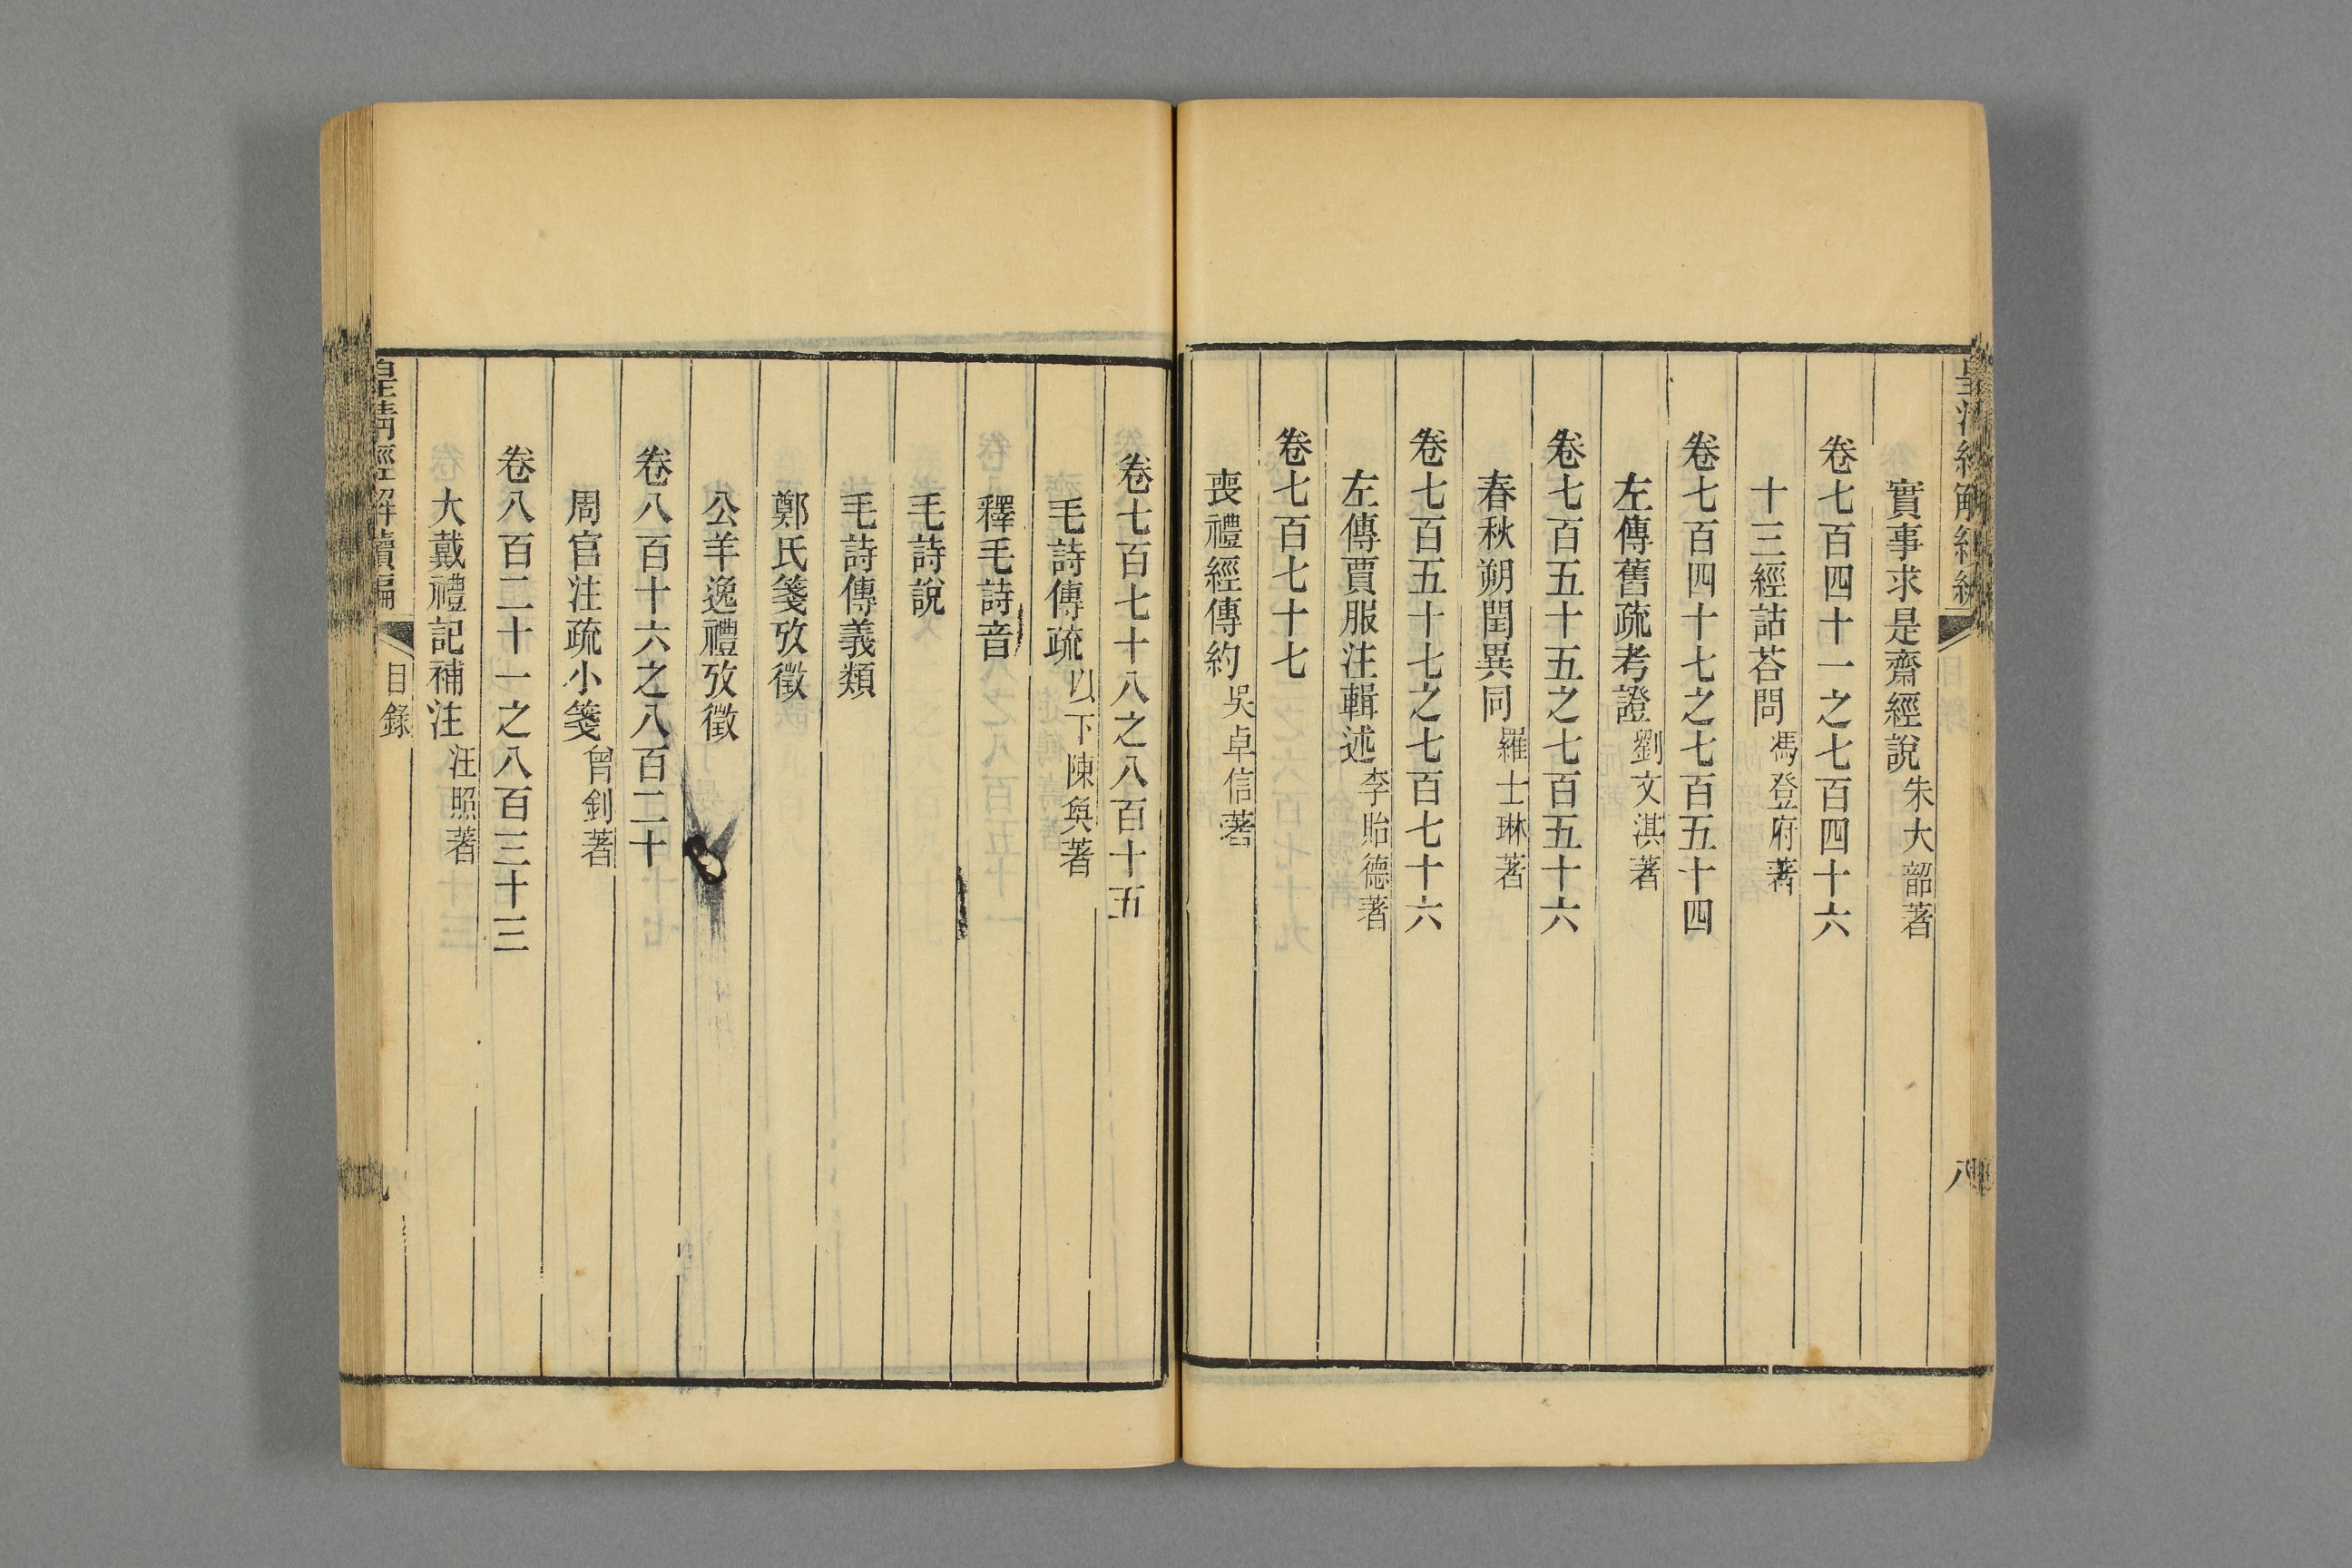 實事求是齋經說朱大韶著
卷七百四十一之七百四十六
十三經詁荅問馮登府著
卷七百四十七之七百五十四
左傳舊疏考證劉文淇著
卷七百五十五之七百五十六
春秋朔閏異同羅士琳著
卷七百五十七之七百七十六
左傳賈服注輯述李貽德著
卷七百七十七
喪禮經傳約吳卓信著
八
卷七百七十八之八百十五
毛詩傳疏以下陳奐著
釋毛詩音
毛詩說
毛詩傳義類
鄭氏箋攷徵
公羊逸禮攷徵
卷八百十六之八百二十
周官注疏小箋曾釗著
卷八百二十一之八百三十三
大戴禮記補注汪照著
皇清經解續編
目錄